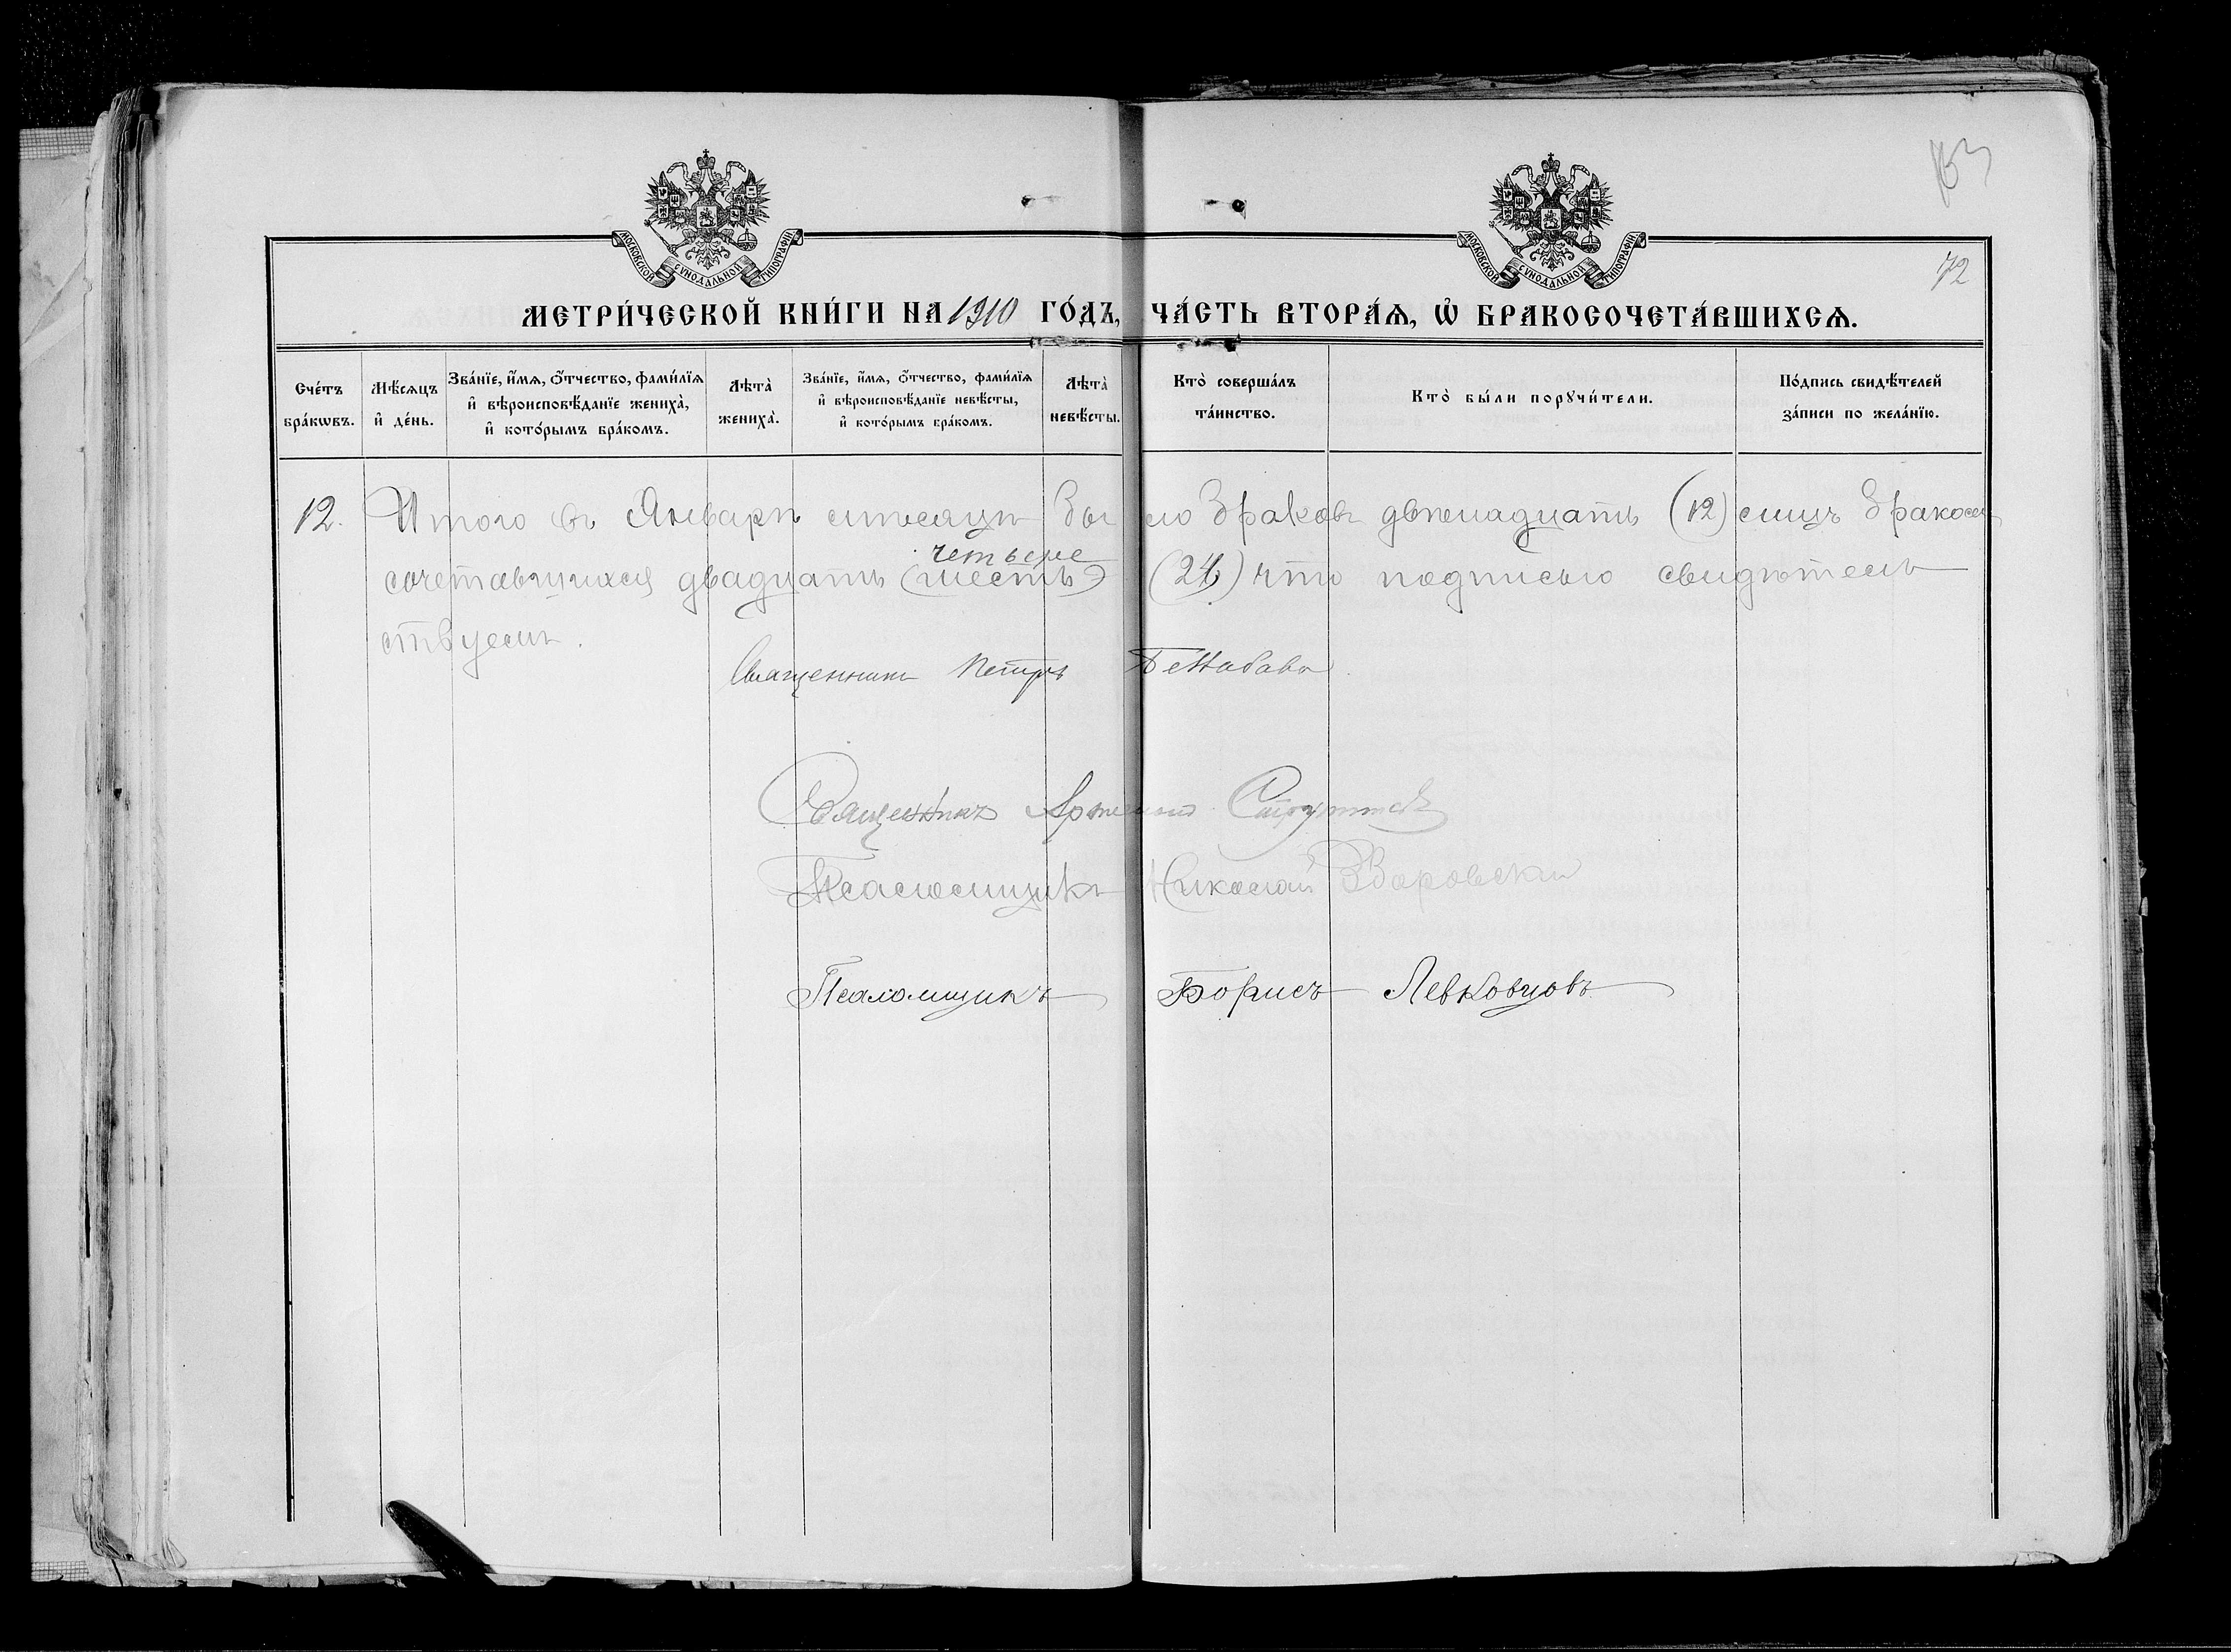 153
72
МОСКОВСКОЙ СУНОДАЛЬНОЙ ТИПОГРАФІИ
МОСКОВСКОЙ СУНОДАЛЬНОЙ ТИПОГРАФІИ
МЕТРИ́ЧЕСКОЙ КНИ́ГИ НА 1910 ГО́ДЪ, ЧА́СТЬ ВТОРА́Ѧ, Ѽ БРАКОСОЧЕТА́ВШИХСѦ.
Сче́тъ бра́кѡвъ.
Мѣ́сѧцъ и҆ де́нь.
Зва́нїе, и҆́мѧ, ѻ҆́тчество, фами́лїѧ и҆ вѣроисповѣ́данїе жениха̀, и҆ кото́рымъ бра́комъ.
Лѣта̀ жениха̀.
Зва́нїе, и҆́мѧ, ѻ҆́тчество, фами́лїѧ и҆ вѣроисповѣ́данїе невѣ́сты, и҆ кото́рымъ бра́комъ.
Лѣта̀ невѣ́сты.
Кто̀ соверша́лъ та́инство.
Кто̀ бы́ли порꙋчи́тели.
По́дпись свидѣ́телей за́писи по жела́нїю.
12. Итого въ Январѣ мѣсяцѣ было браковъ двѣнадцать (12) лицъ бракосо
четыре
сочетавшихся двадцать (шесть) (24) что подписью свидѣтель
ствуемъ.
Священникъ Петръ
Священникъ
Псаломщикъ Николай
Псаломщикъ Борисъ Левковцовъ